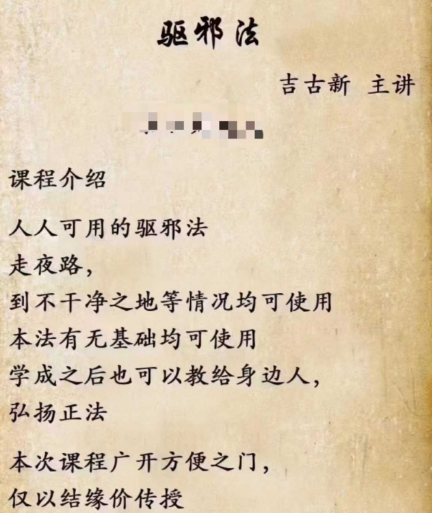 驱邪法
吉古新 主讲
课程介绍
人人可用的驱邪法
走夜路，
到不干净之地等情况均可使用
本法有无基础均可使用
学成之后也可以教给身边人，
弘扬正法
本次课程广开方便之门，
仅以结缘价传授